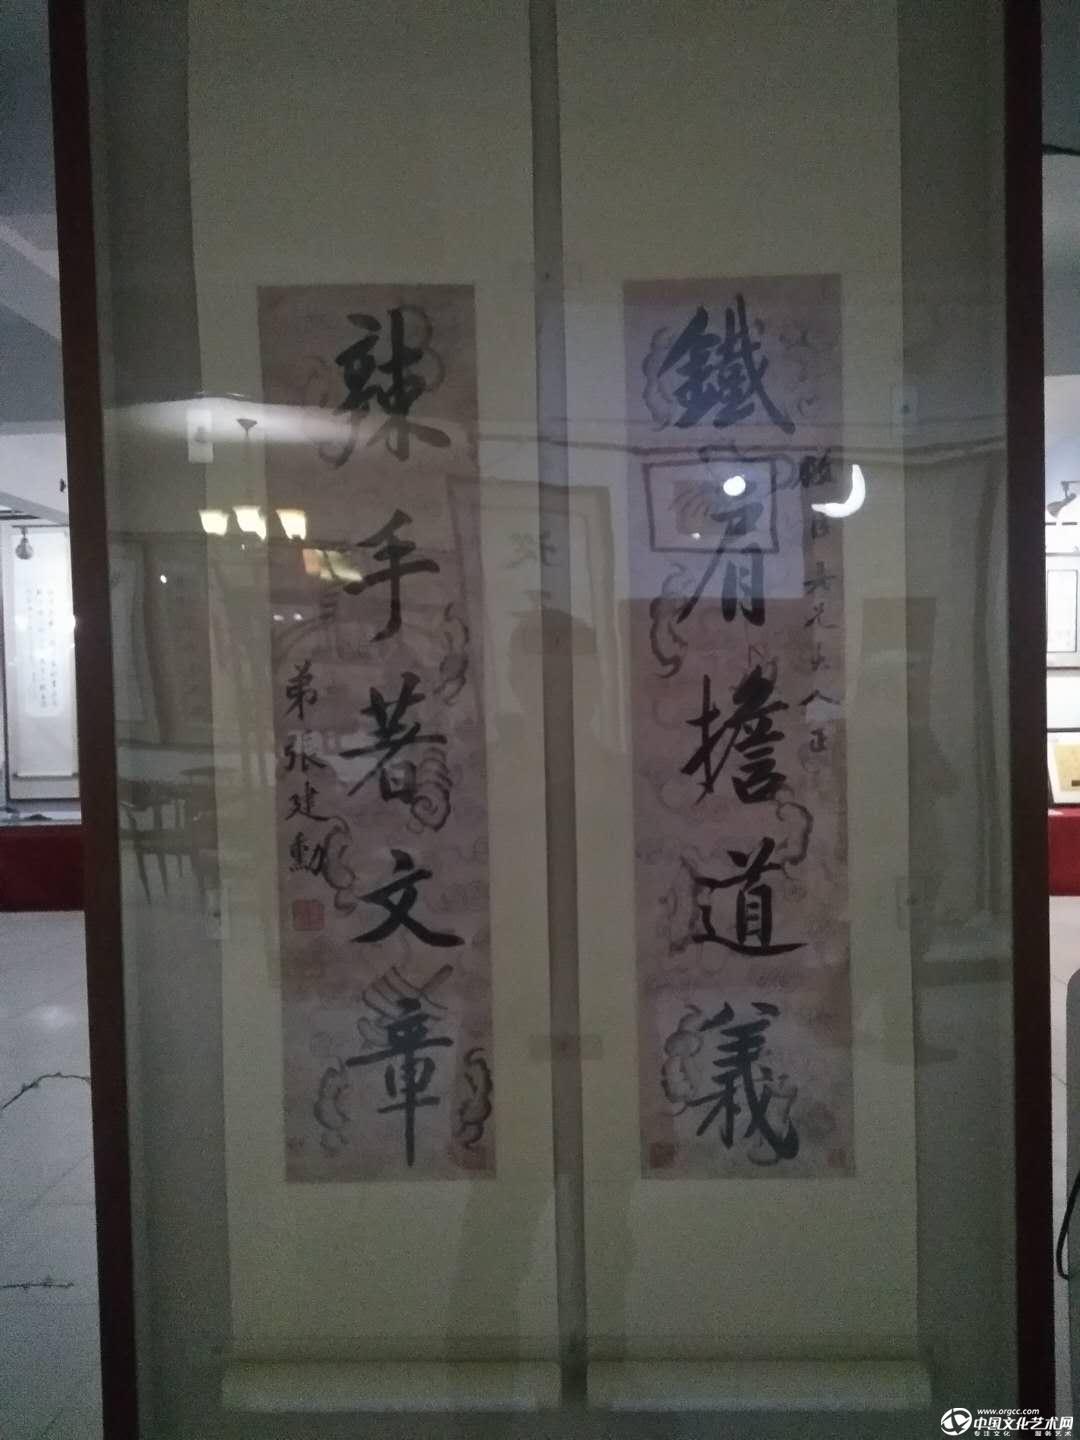 鐵肩擔道義
大兄大人正
辣手著文章
弟張建勳
www.orgcc.com
中国文化艺术网
专注文化 服务艺术